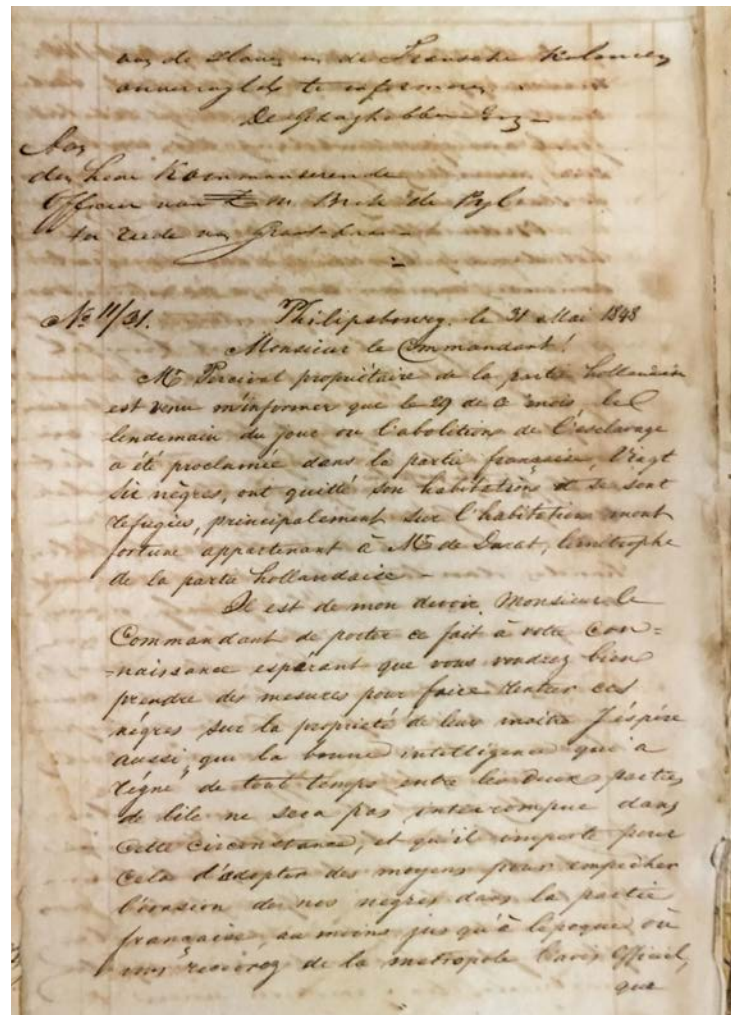 de Fransche Kolonien
te informeren
De Gezaghebber
Aan
den Heer Kommanderende
Officier van Z M Brik de Pyl
ter reede van Groot-baai
No 11/31. Philipsbourg, le 31 Mai 1848
Monsieur le Commandant!
Mr Percival propriétaire de la partie hollandaise
est venu m'informer que le 29 de ce mois, le
lendemain du jour ou l'abolition de l'esclavage
a été proclamée dans la partie française, Vingt
six nègres, ont quitté son habitation et se sont
refugiés, principalement sur l'habitation mont
fortune appartenant à Mr de Durat, limitrophe
de la partie hollandaise -
Il est de mon devoir, Monsieur le
Commandant de porter ce fait à votre Con=
=naissance espérant que vous voudrez bien
prendre des mesures pour faire rentrer ces
nègres sur la propriété de leur maitre J'éspére
aussi, que la bonne intelligence qui a
régné de tout temps entre les deux parties
de l'ile ne sera pas interrompue dans
Cette circonstance, et qu'il importe pour
Cela d'adopter des moyens pour empêcher
l'évasion de nos nègres dans la partie
française, au moins jusqu'à l'époque où
nous recevrez de la métropole l'avis Officiel,
que